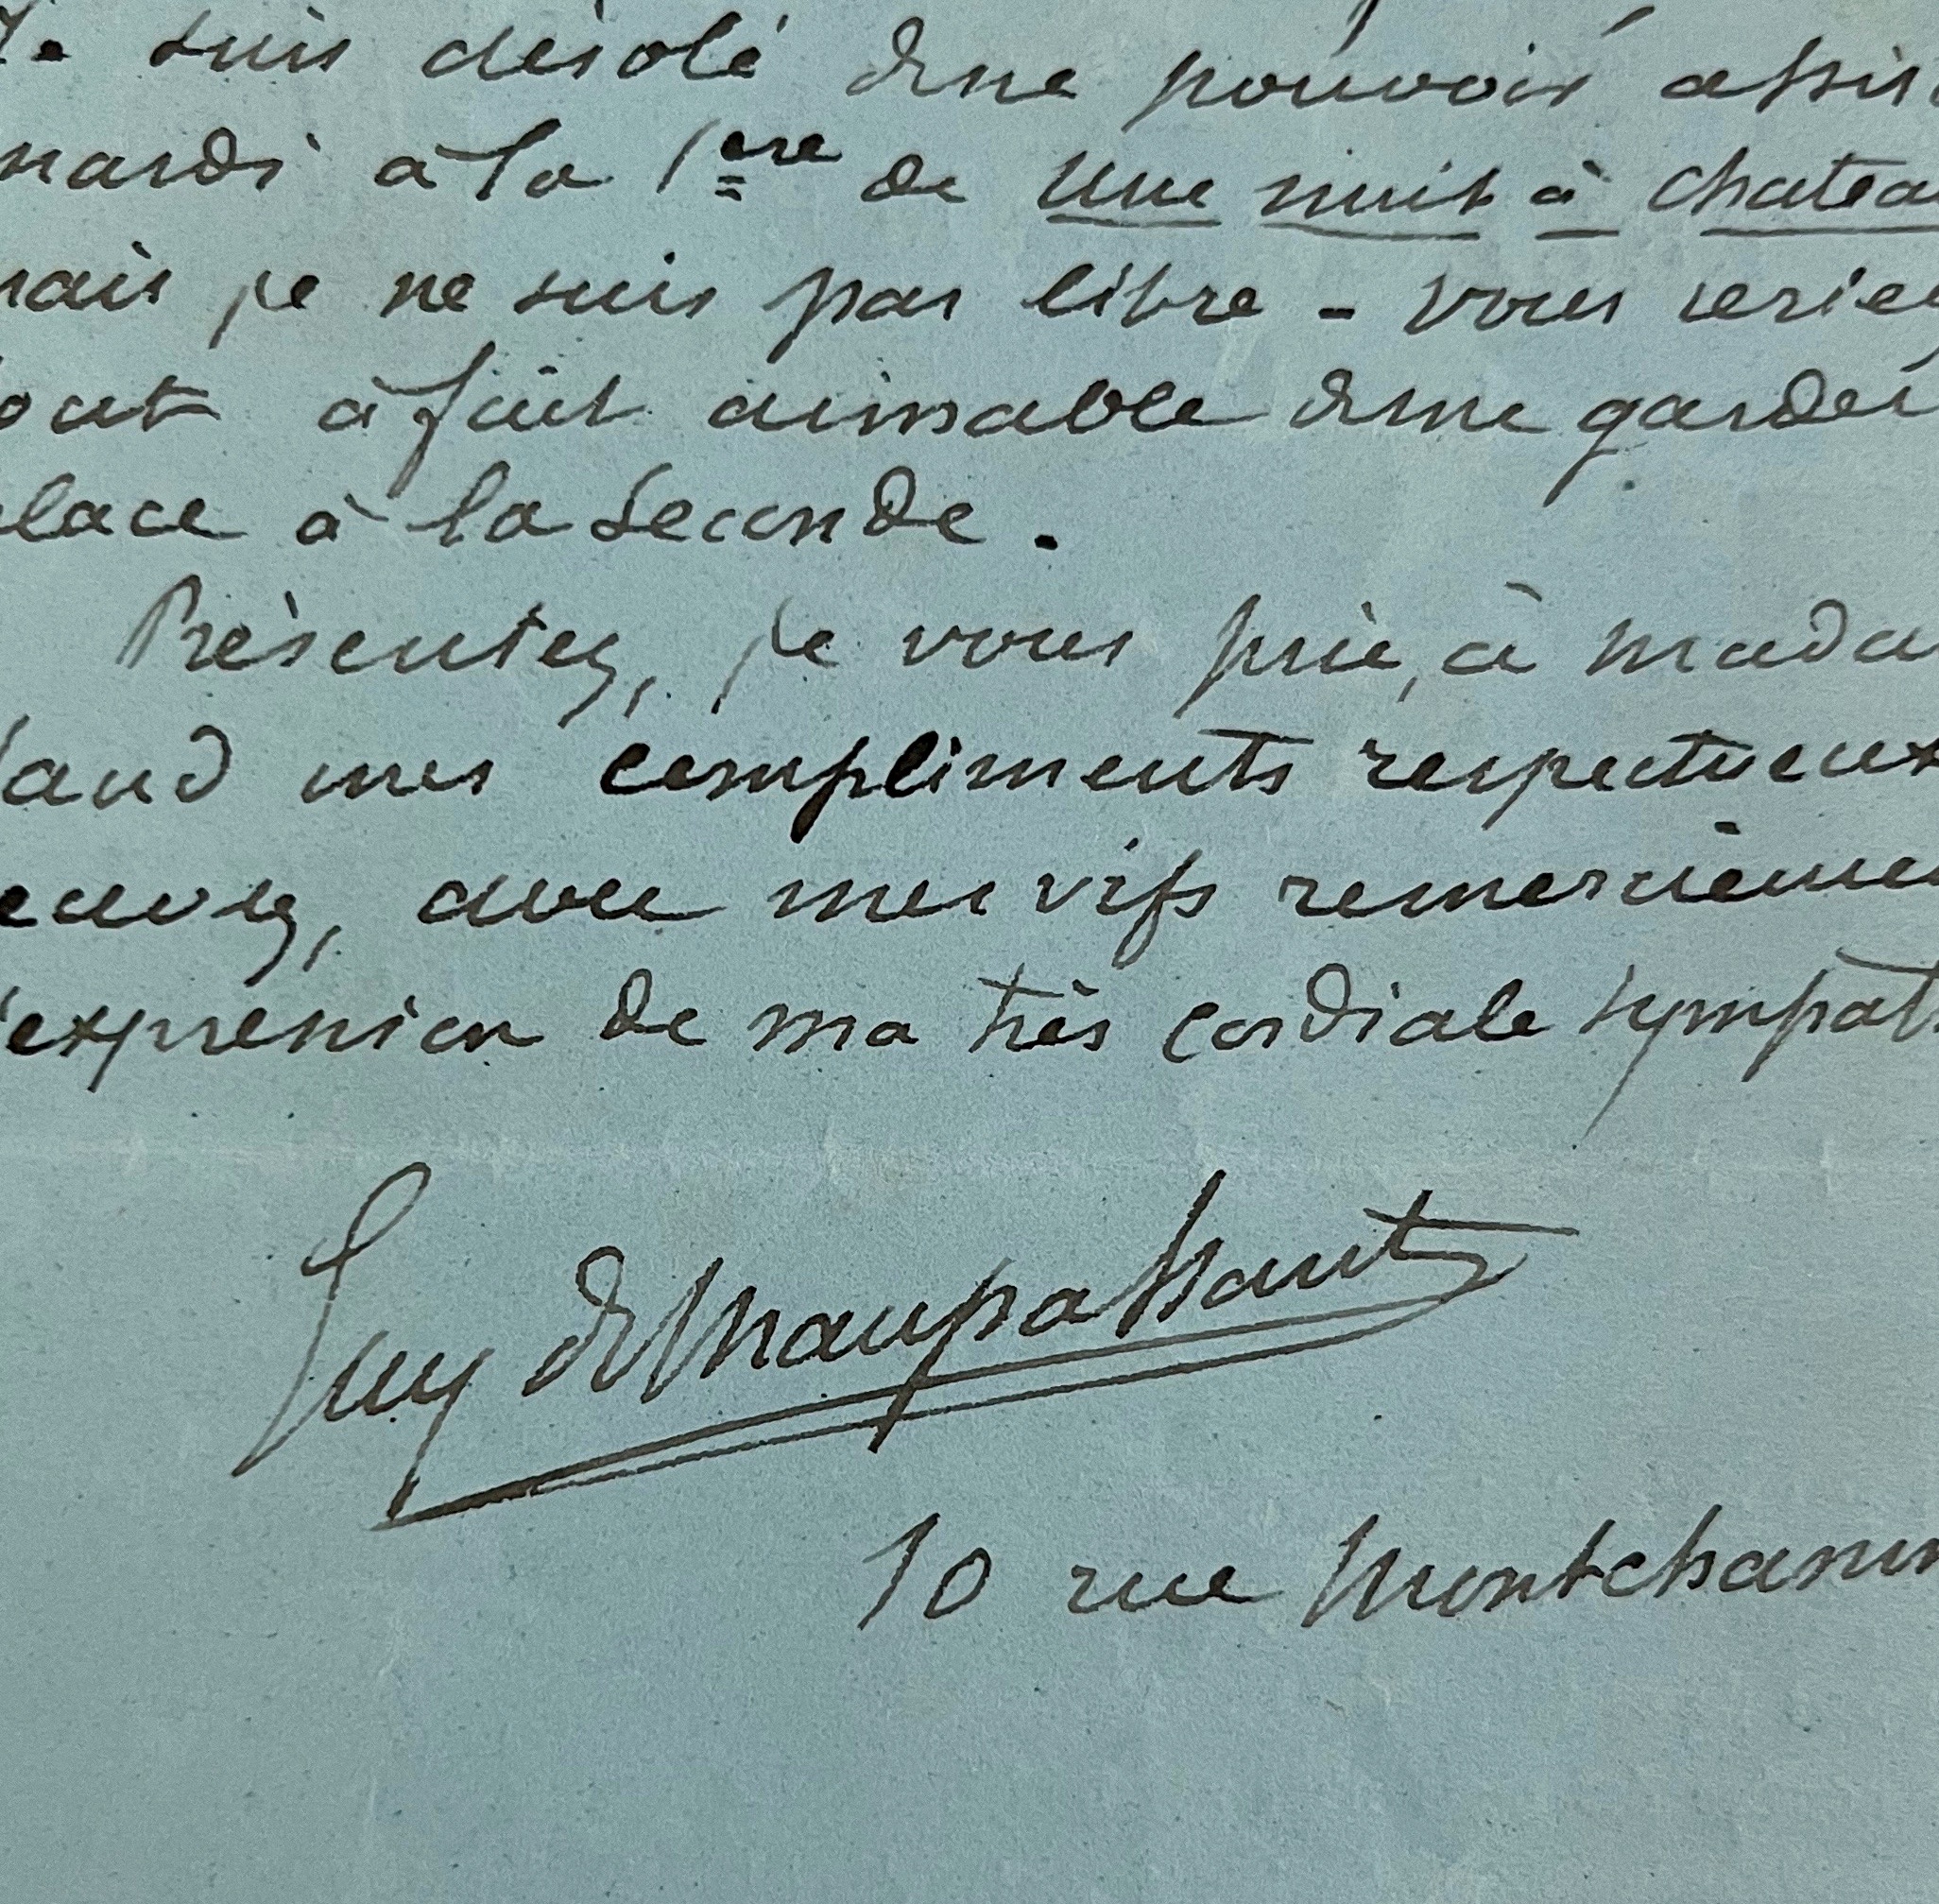 Je suis désolé de ne pouvoir assis
mardi à la 1ère de une nuit à chateau
mais je ne suis pas libre - vous seriez
tout à fait aimable de me garder
place à la seconde.
Présentez, je vous prie, à mada
land mes compliments respectueux
recevez, avec mes vifs remerciemen
l'expression de ma très cordiale sympath
Guy de Maupassant
10 rue Montchanin